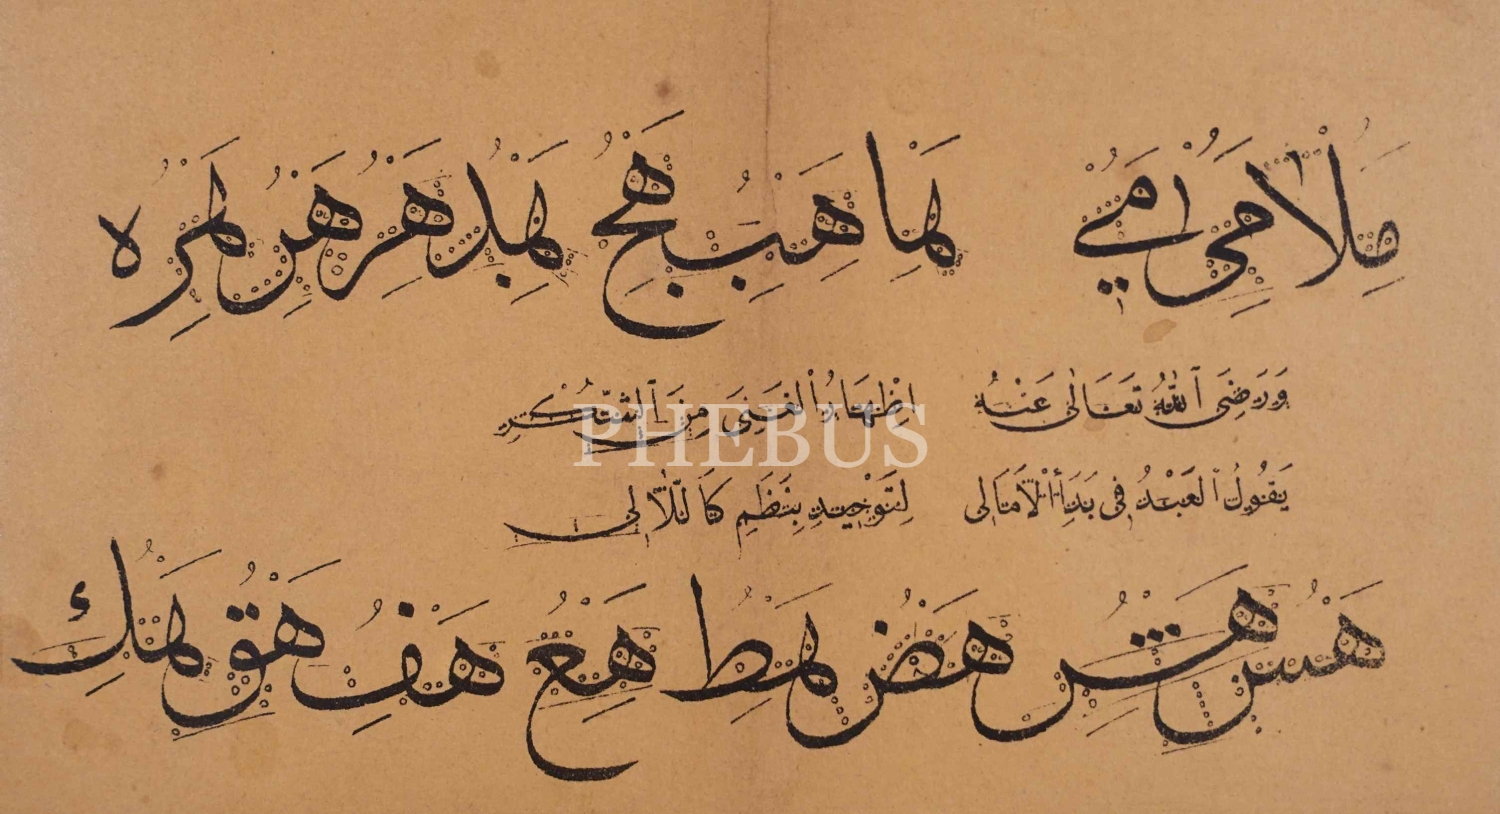 مِلا مِى مي هَا هَب هَج هَد هَر هَر هَر ه
وَرَضِىَ اللّٰهُ تَعَالٰى عَنْهُ اِظْهَارُ الْغِنَى مِنَ الشُّكْرِ
يَقُولُ الْعَبْدُ فِى بَدْءِ الْاَمَالِى لِتَوْحِيدٍ بِنَظْمٍ كَاللَّاٰلِى
هَس هَش هَض هَط هَع هَف هَق هَك
PHEBUS